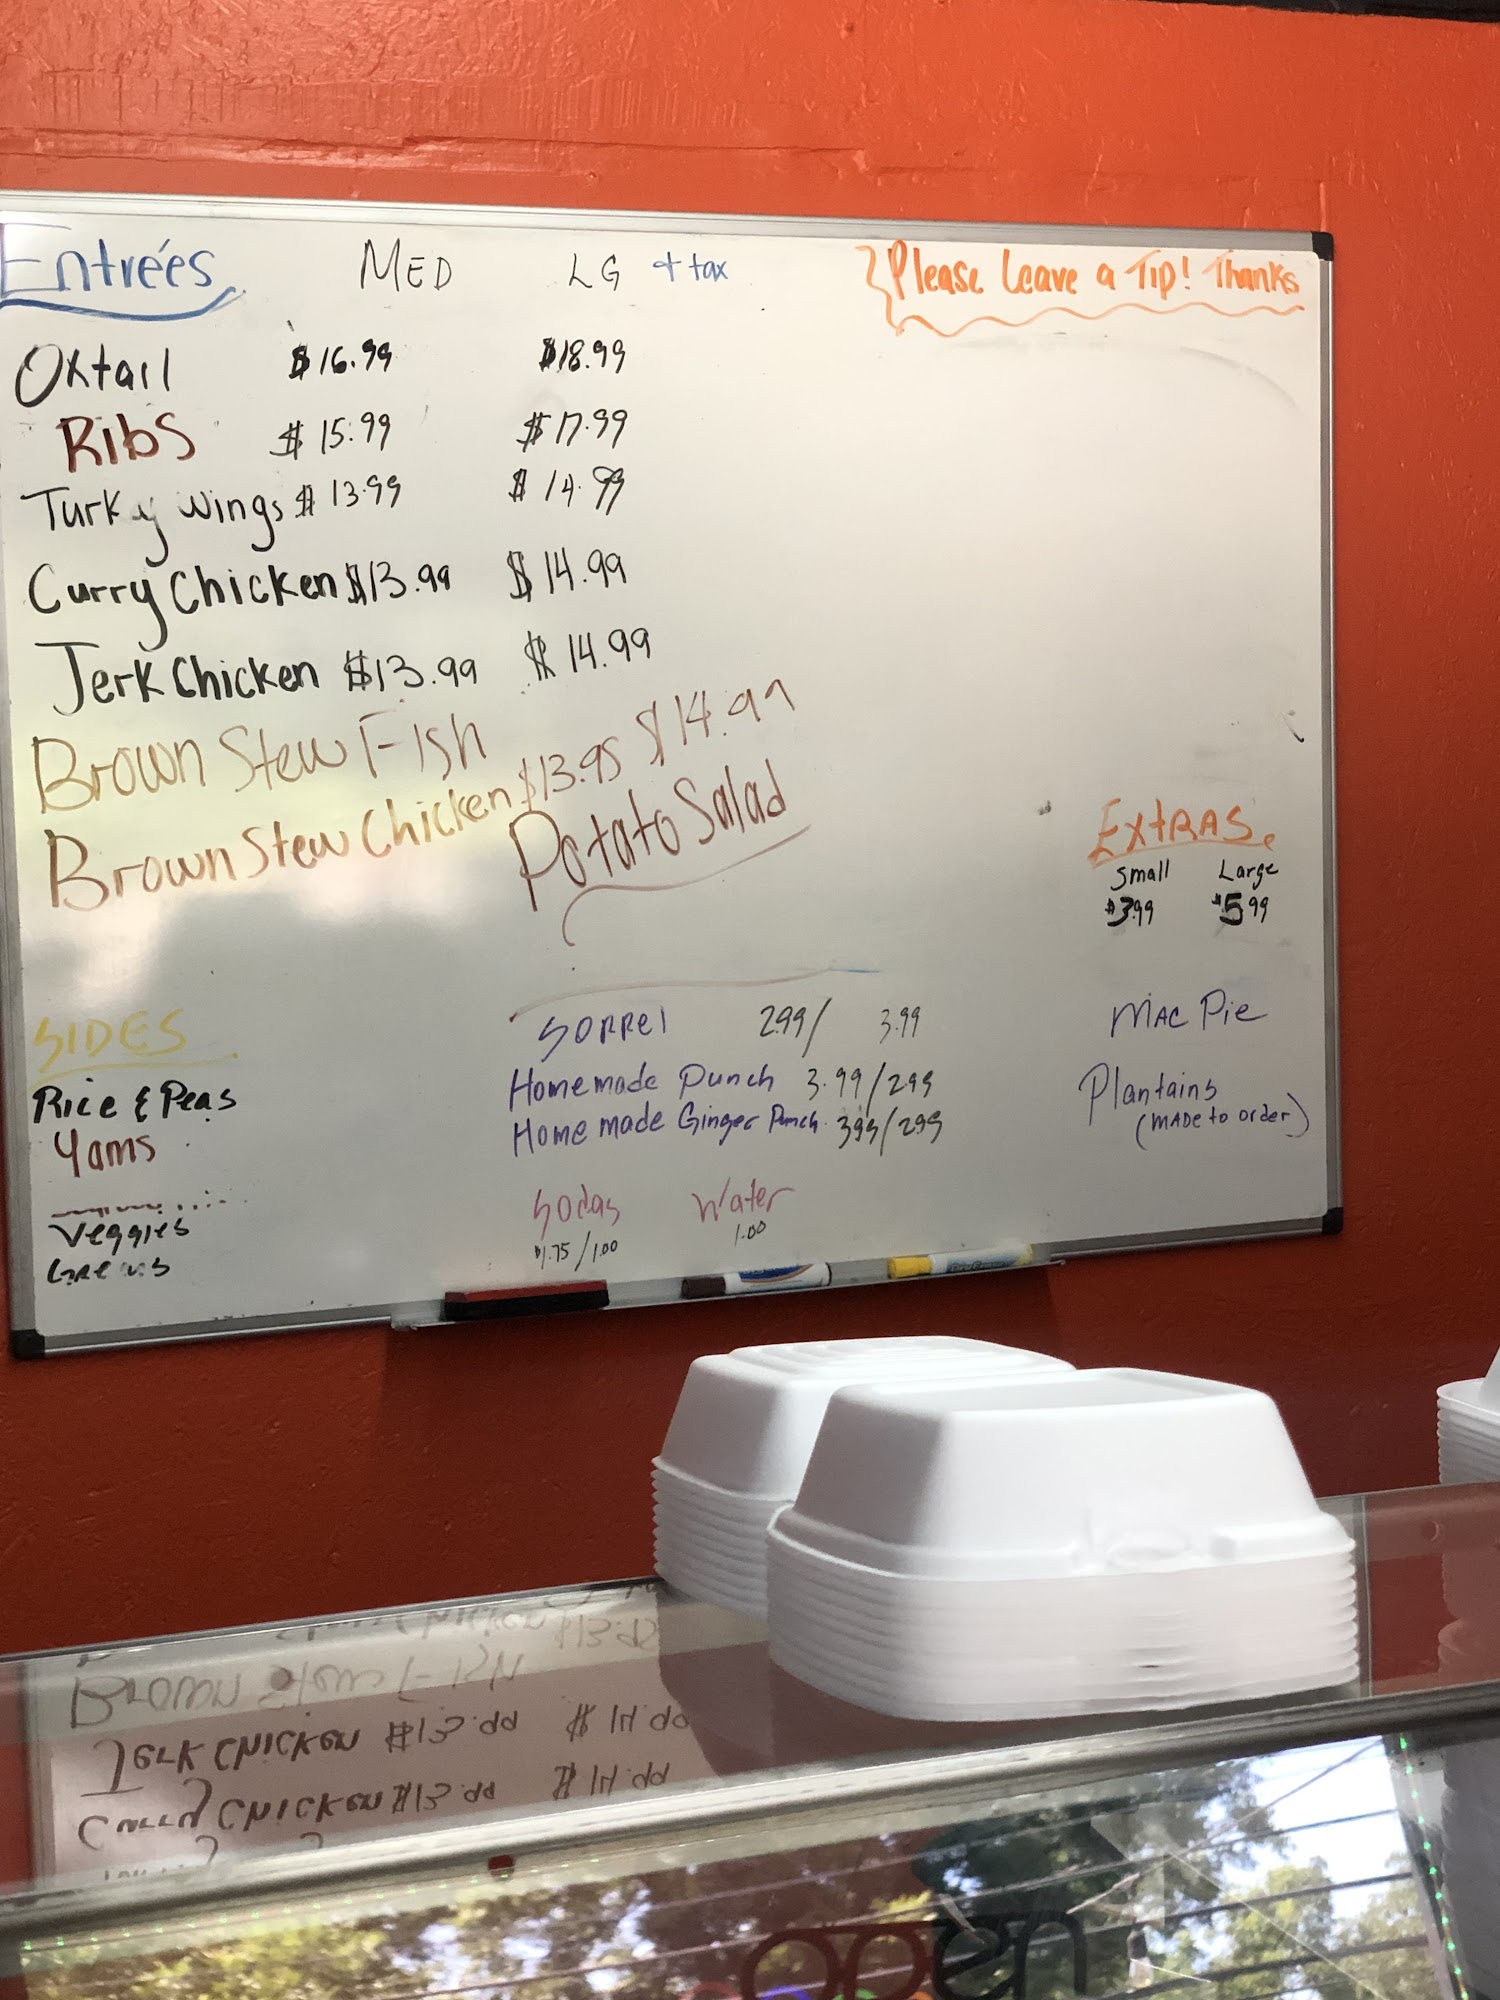 Entrées MED LG + tax
Please Leave a Tip! Thanks
Oxtail $16.99 $18.99
Ribs $15.99 $17.99
Turky wings $13.99 $14.99
Curry Chicken $13.99 $14.99
Jerk Chicken $13.99 $14.99
Brown Stew Fish
Brown Stew Chicken $13.95 $14.99
Potato Salad
EXTRAS
Small Large
$3.99 $5.99
Mac Pie
Plantains
(MADE to order)
SIDES
Rice & Peas
Yams
Veggies
Greens
Sorrel 2.99/ 3.99
Homemade Punch 3.99/299
Home made Ginger Punch 399/299
Sodas Water
$1.75/1.00 1.00
open